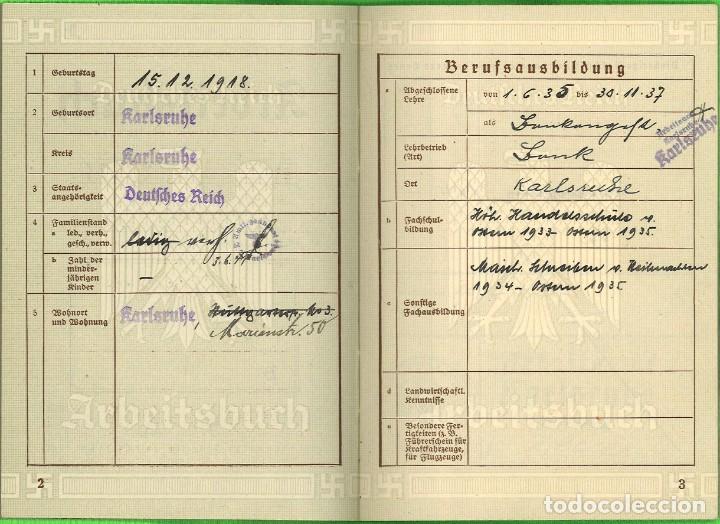 1 Geburtstag
15.12.1918.
2 Geburtsort
Karlsruhe
Kreis
Karlsruhe
3 Staats-
angehörigkeit
Deutsches Reich
4 Familienstand
a led., verh.,
gesch., verw.
ledig verh.
3.6.44
b Zahl der
minder-
jährigen
Kinder
–
5 Wohnort
und Wohnung
Karlsruhe,
Marienstr. 50
Arbeitsbuch
2
Berufsausbildung
a Abgeschlossene
Lehre
von 1.6.35 bis 30.11.37
als Bankangest
Lehrbetrieb
(Art)
Bank
Ort
Karlsruhe
Karlsruhe
b Fachschul-
bildung
Höh. Handelsschule v.
Ostern 1933 - Ostern 1935.
Masch. Schreiben v. Weihnachten
1934 - Ostern 1935
c Sonstige
Fachausbildung
d Landwirtschaftl.
Kenntnisse
e Besondere Fer-
tigkeiten (z. B.
Führerschein für
Kraftfahrzeuge,
für Flugzeuge)
Arbeitsbuch
3
todocoleccion.net